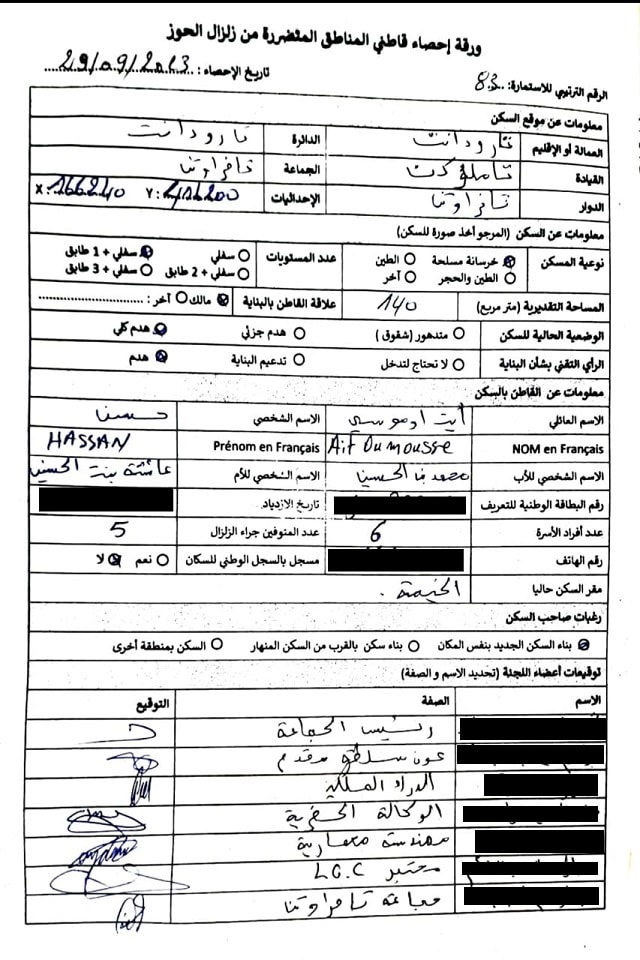 ورقة إحصاء قاطني المناطق المتضررة من زلزال الحوز
الرقم الترتيبي للاستمارة: 83 تاريخ الإحصاء : 29/09/2023
معلومات عن موقع السكن
العمالة أو الإقليم تارودانت الدائرة تارودانت
القيادة تاملوكت الجماعة تافراوتن
الدوار تافراوتن الإحداثيات X: 166240 Y:
معلومات عن السكن (المرجو أخذ صورة للسكن)
نوعية المسكن خرسانة مسلحة الطين عدد المستويات سفلي سفلي + 1 طابق
الطين والحجر آخر سفلي + 2 طابق سفلي + 3 طابق
المساحة التقديرية (متر مربع) 140 علاقة القاطن بالبناية مالك آخر :
الوضعية الحالية للسكن متدهور (شقوق) هدم جزئي هدم كلي
الرأي التقني بشأن البناية لا تحتاج لتدخل تدعيم البناية هدم
معلومات عن القاطن بالسكن
الاسم العائلي أيت اوموسى الاسم الشخصي حسن
NOM en Français Ait Oumousse Prénom en Français HASSAN
الاسم الشخصي للأب محمد بن الحسين الاسم الشخصي للأم عائشة بنت الحسين
رقم البطاقة الوطنية للتعريف تاريخ الازدياد
عدد أفراد الأسرة 6 عدد المتوفين جراء الزلزال 5
رقم الهاتف مسجل بالسجل الوطني للسكان نعم لا
مقر السكن حاليا الخيمة .
رغبات صاحب السكن
بناء السكن الجديد بنفس المكان بناء سكن بالقرب من السكن المنهار السكن بمنطقة أخرى
توقيعات أعضاء اللجنة (تحديد الاسم و الصفة)
الاسم الصفة التوقيع
رئيس الجماعة
عون سلطة مقدم
الدرك الملكي
الوكالة الحضرية
مهندسة معمارية
مختبر L.G.C
جماعة تافراوتن